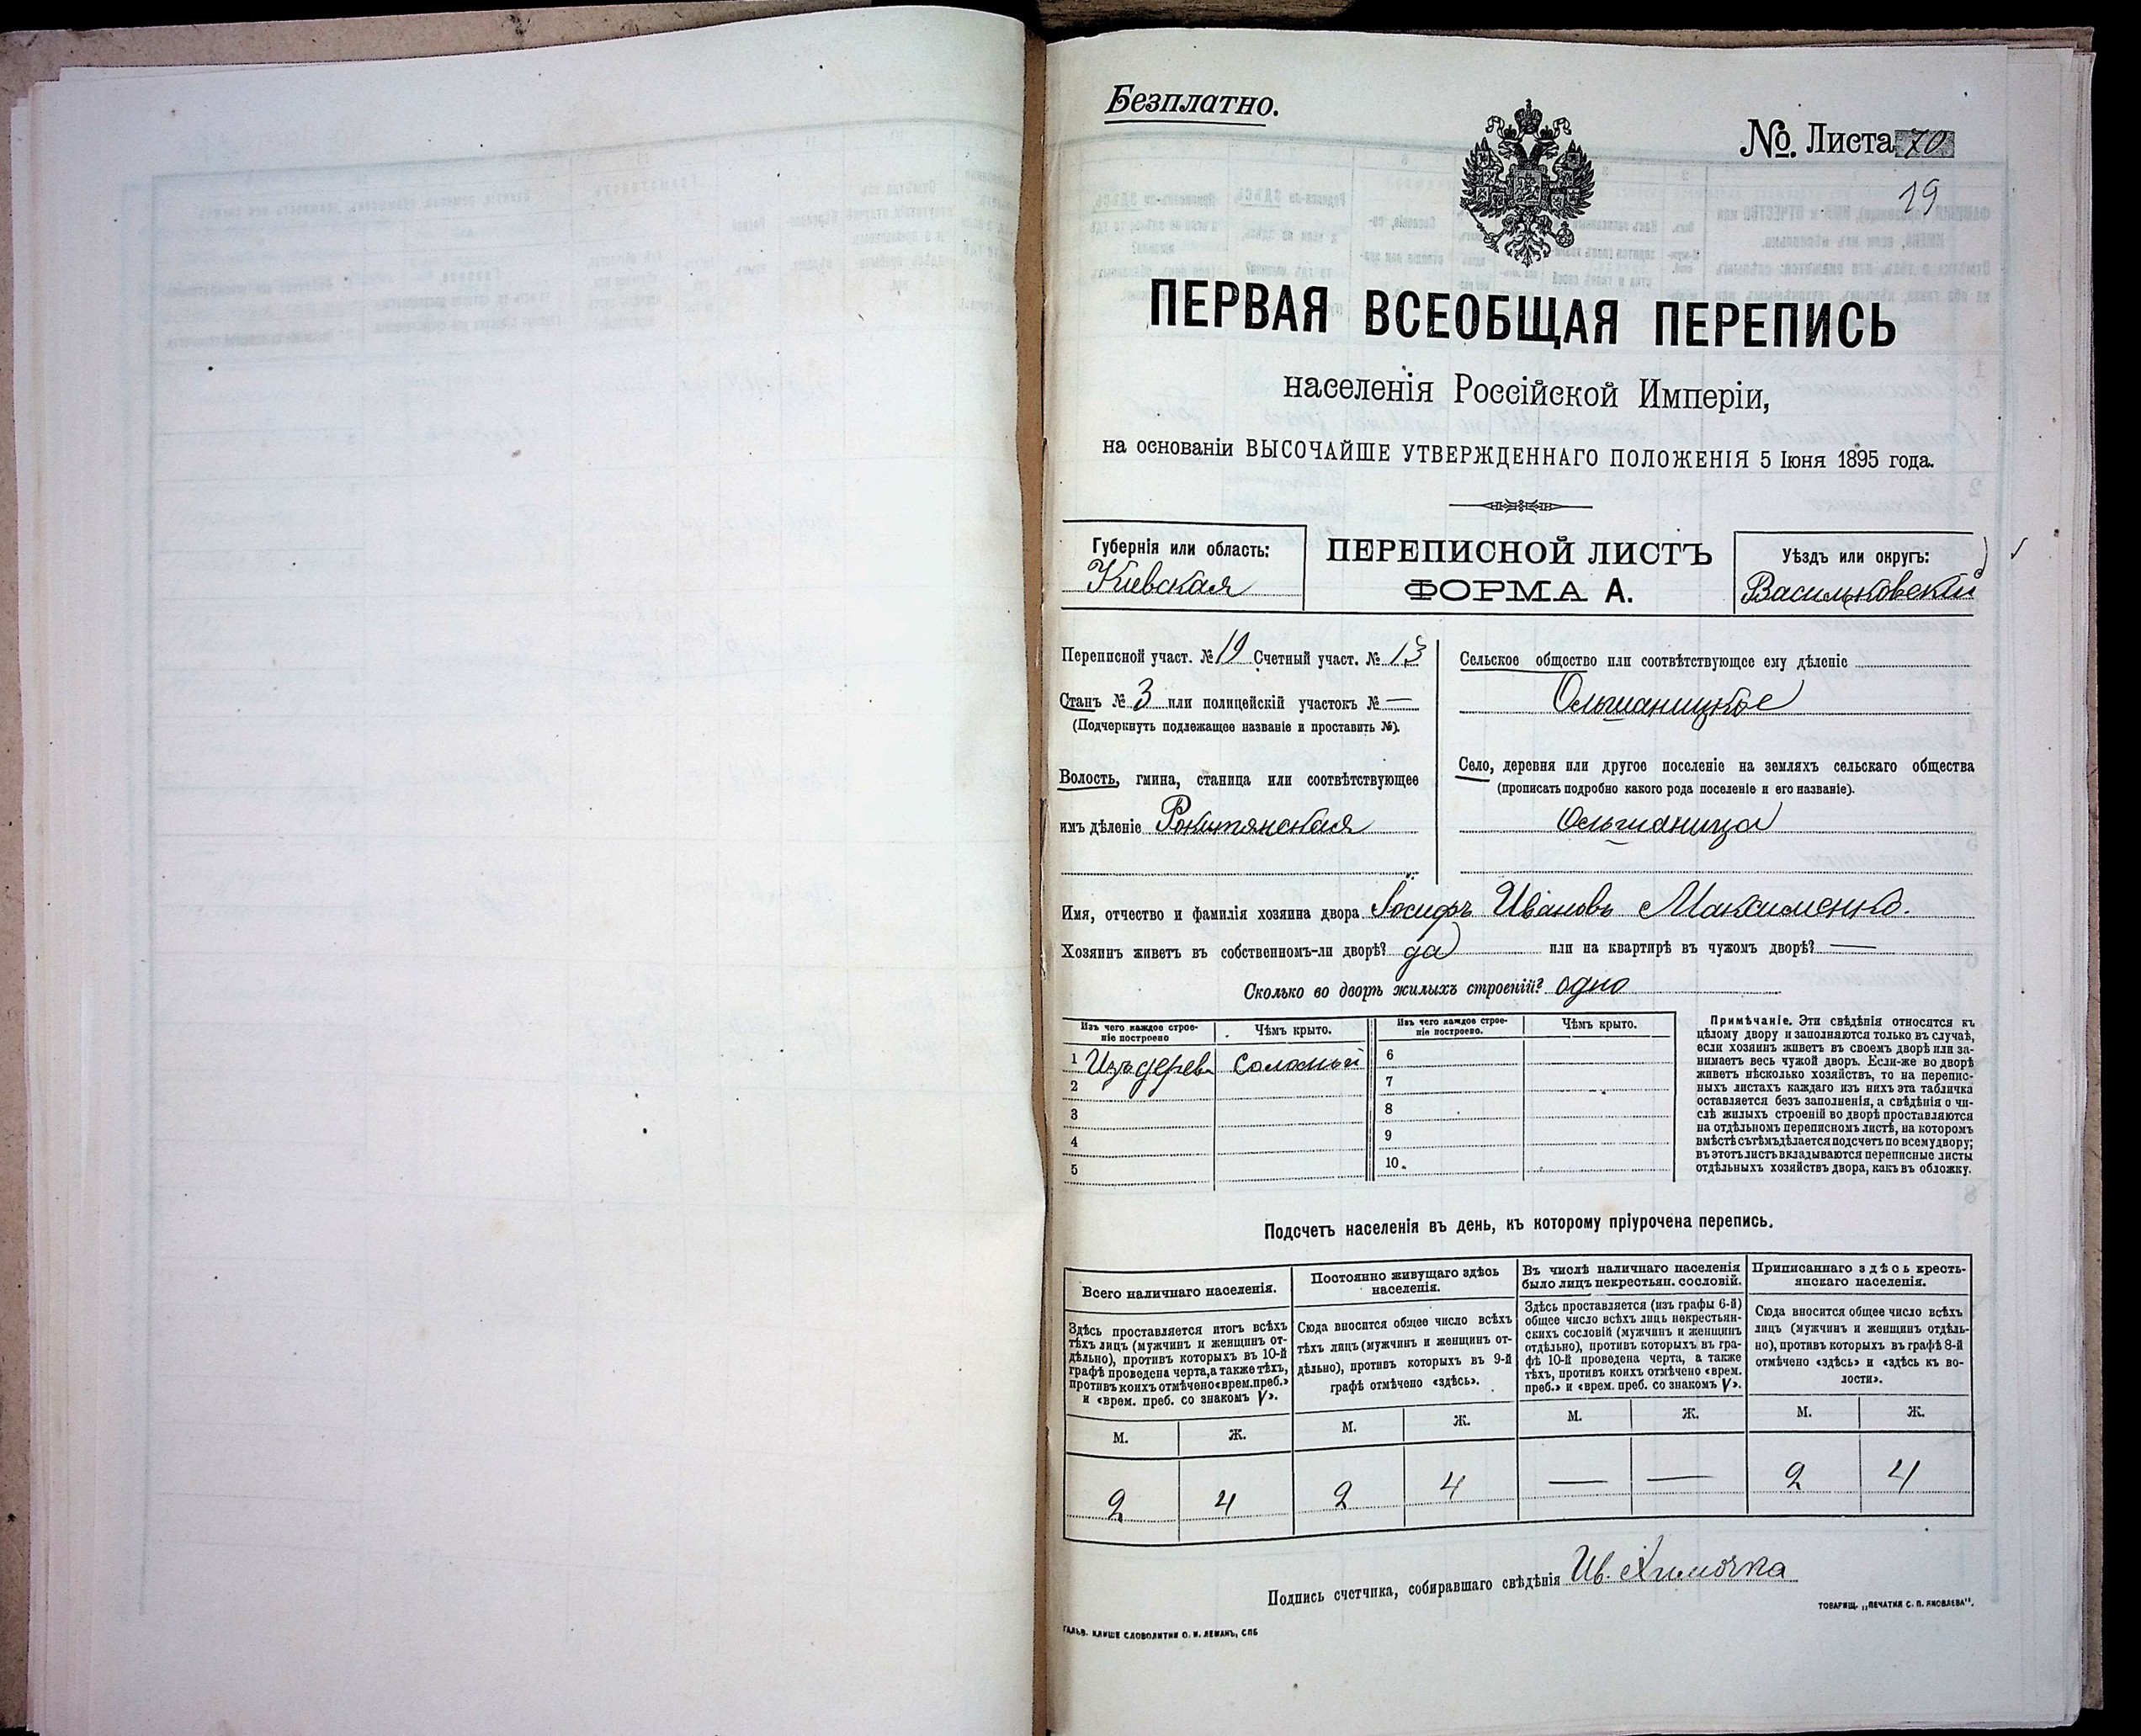 Безплатно.
№. Листа 70
19
ПЕРВАЯ ВСЕОБЩАЯ ПЕРЕПИСЬ
населенія Россійской Имперіи,
на основаніи ВЫСОЧАЙШЕ УТВЕРЖДЕННАГО ПОЛОЖЕНІЯ 5 Іюня 1895 года.
Губернія или область:
Кіевская
ПЕРЕПИСНОЙ ЛИСТЪ
ФОРМА А.
Уѣздъ или округъ:
Васильковскій
Переписной участ. № 19 Счетный участ. № 13
Станъ № 3 или полицейскій участокъ № —
(Подчеркнуть подлежащее названіе и проставить №).
Волость, гмина, станица или соотвѣтствующее
имъ дѣленіе Рокитянская
Сельское общество или соотвѣтствующее ему дѣленіе
Ольшаницкое
Село, деревня или другое поселеніе на земляхъ сельскаго общества
(прописать подробно какого рода поселеніе и его названіе).
Ольшаница
Имя, отчество и фамилія хозяина двора Іосифъ Ивановъ Максименко.
Хозяинъ живетъ въ собственномъ-ли дворѣ? да или на квартирѣ въ чужомъ дворѣ? —
Сколько во дворѣ жилыхъ строеній? одно
Изъ чего каждое строе-
ніе построено
Чѣмъ крыто.
Изъ чего каждое строе-
ніе построено.
Чѣмъ крыто.
1 Изъ дерева Соломой
2
3
4
5
6
7
8
9
10.
Примѣчаніе. Эти свѣдѣнія относятся къ
цѣлому двору и заполняются только въ случаѣ,
если хозяинъ живетъ въ своемъ дворѣ или за-
нимаетъ весь чужой дворъ. Если-же во дворѣ
живетъ нѣсколько хозяйствъ, то на перепис-
ныхъ листахъ каждаго изъ нихъ эта табличка
оставляется безъ заполненія, а свѣдѣнія о чи-
слѣ жилыхъ строеній во дворѣ проставляются
на отдѣльномъ переписномъ листѣ, на которомъ
вмѣстѣ съ тѣмъ дѣлается подсчетъ по всему двору;
въ этотъ листъ вкладываются переписные листы
отдѣльныхъ хозяйствъ двора, какъ въ обложку.
Подсчетъ населенія въ день, къ которому пріурочена перепись.
Всего наличнаго населенія.
Здѣсь проставляется итогъ всѣхъ
тѣхъ лицъ (мужчинъ и женщинъ от-
дѣльно), противъ которыхъ въ 10-й
графѣ проведена черта, а также тѣхъ,
противъ коихъ отмѣчено «врем. преб.»
и «врем. преб. со знакомъ V».
Постоянно живущаго здѣсь
населенія.
Сюда вносится общее число всѣхъ
тѣхъ лицъ (мужчинъ и женщинъ от-
дѣльно), противъ которыхъ въ 9-й
графѣ отмѣчено «здѣсь».
Въ числѣ наличнаго населенія
было лицъ некрестьян. сословій.
Здѣсь проставляется (изъ графы 6-й)
общее число всѣхъ лицъ некрестьян-
скихъ сословій (мужчинъ и женщинъ
отдѣльно), противъ которыхъ въ гра-
фѣ 10-й проведена черта, а также
тѣхъ, противъ коихъ отмѣчено «врем.
преб.» и «врем. преб. со знакомъ V».
Приписаннаго здѣсь кресть-
янскаго населенія.
Сюда вносится общее число всѣхъ
лицъ (мужчинъ и женщинъ отдѣль-
но), противъ которыхъ въ графѣ 8-й
отмѣчено «здѣсь» и «здѣсь къ во-
лости».
М. Ж. М. Ж. М. Ж. М. Ж.
2 4 2 4 — — 2 4
Подпись счетчика, собиравшаго свѣдѣнія Ив.
ТОВАРИЩ. „ПЕЧАТНЯ С. П. ЯКОВЛЕВА".
ГАЛЬВ. КЛИШЕ СЛОВОЛИТНИ О. И. ЛЕМАНЪ, СПБ